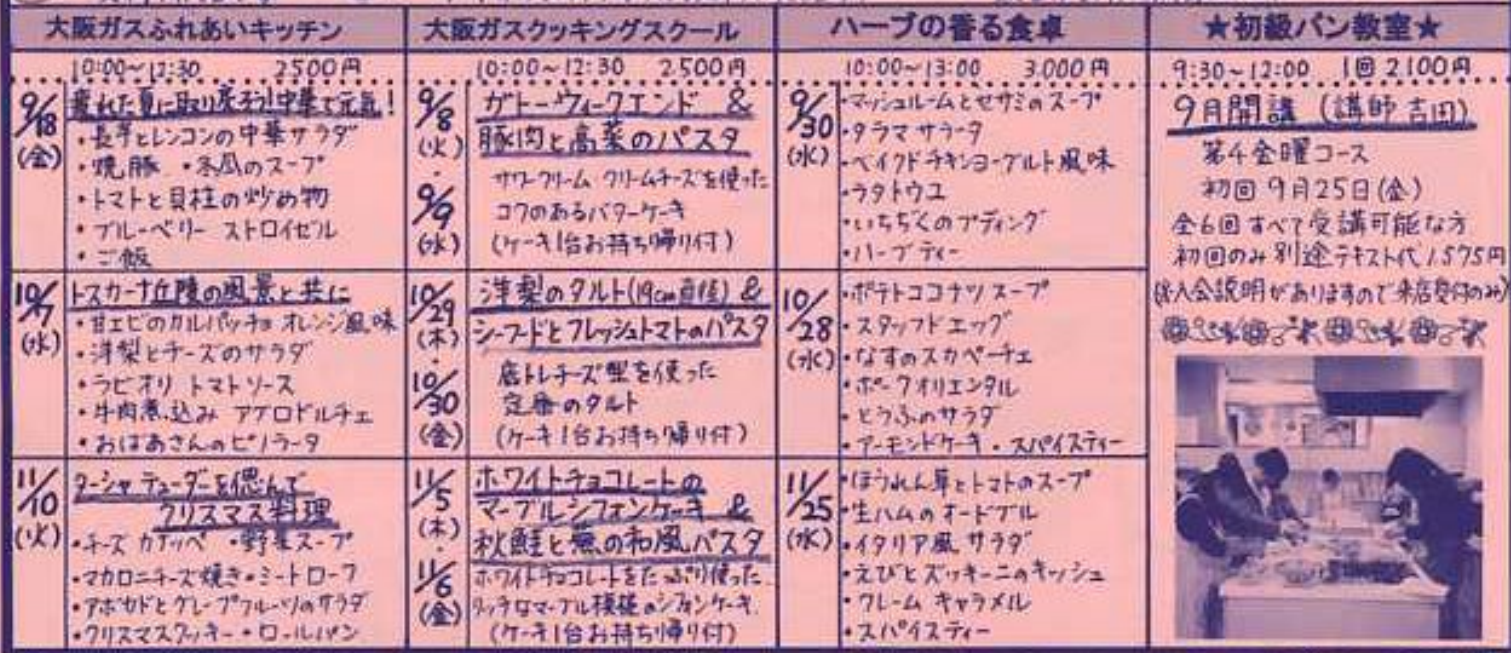 大阪ガスふれあいキッチン
10:00~12:30 2500円
9/18(金)
疲れた夏に取り戻そう!中華で元気!
・長芋とレンコンの中華サラダ
・焼豚 ・冬瓜のスープ
・トマトと貝柱の炒め物
・ブルーベリー ストロイゼル
・ご飯
10/7(水)
トスカーナ丘陵の風景と共に
・甘エビのカルパッチョ オレンジ風味
・洋梨とチーズのサラダ
・ラビオリ トマトソース
・牛肉煮込み アグロドルチェ
・おばあさんのピノラータ
11/10(火)
ターシャ テューダーを偲んで
クリスマス料理
・チーズ カナッペ ・野菜スープ
・マカロニチーズ焼き・ミートローフ
・アボカドとグレープフルーツのサラダ
・クリスマスクッキー・ロールパン
大阪ガスクッキングスクール
10:00~12:30 2,500円
9/8(火)・9/9(水)
ガトーウィークエンド &
豚肉と高菜のパスタ
サワークリーム クリームチーズを使った
コクのあるバターケーキ
(ケーキ1台お持ち帰り付)
10/29(木)・10/30(金)
洋梨のタルト(19cm直径) &
シーフードとフレッシュトマトのパスタ
底トレチーズ型を使った
定番のタルト
(ケーキ1台お持ち帰り付)
11/5(木)・11/6(金)
ホワイトチョコレートの
マーブルシフォンケーキ &
秋鮭と蕪の和風パスタ
ホワイトチョコレートをたっぷり使った
リッチなマーブル模様のシフォンケーキ
(ケーキ1台お持ち帰り付)
ハーブの香る食卓
10:00~13:00 3,000円
9/30(水)
・マッシュルームとセサミのスープ
・タラマ サラータ
・ベイクドチキンヨーグルト風味
・ラタトウユ
・いちぢくのプディング
・ハーブティー
10/28(水)
・ポテトココナツスープ
・スタッフドエッグ
・なすのスカペーチェ
・ポークオリエンタル
・とうふのサラダ
・アーモンドケーキ・スパイスティー
11/25(水)
・ほうれん草とトマトのスープ
・生ハムのオードブル
・イタリア風サラダ
・えびとズッキーニのキッシュ
・クレーム キャラメル
・スパイスティー
★初級パン教室★
9:30~12:00 1回 2,100円
9月開講 (講師 吉田)
第4金曜コース
初回 9月25日(金)
全6回すべて受講可能な方
初回のみ別途テキスト代1,575円
入会説明がありますので来店受付のみ)